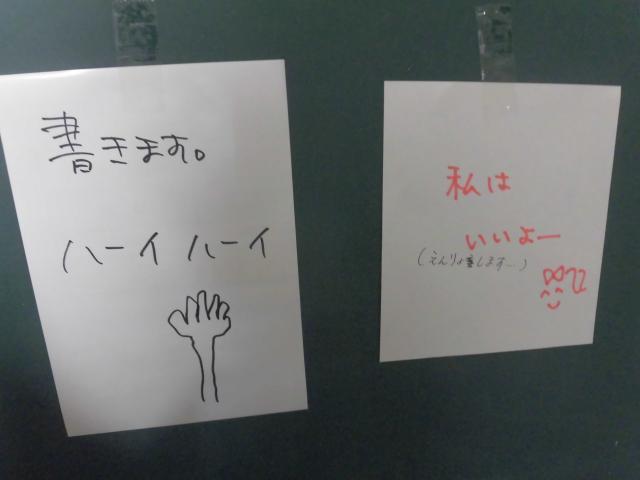 書きます。
ハーイ ハーイ
私は
いいよー
(えんりょします…)